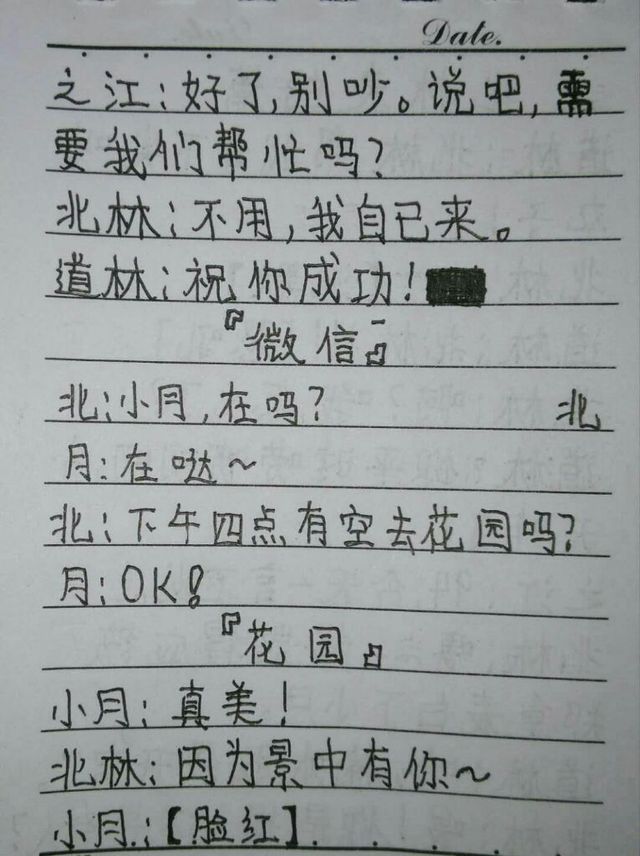 Date.
之江:好了,别吵。说吧,需
要我们帮忙吗?
北林:不用,我自已来。
道林:祝你成功!
『微信』
北:小月,在吗? 北
月:在哒~
北:下午四点有空去花园吗?
月:OK!
『花园』
小月:真美!
北林:因为景中有你~
小月:【脸红】